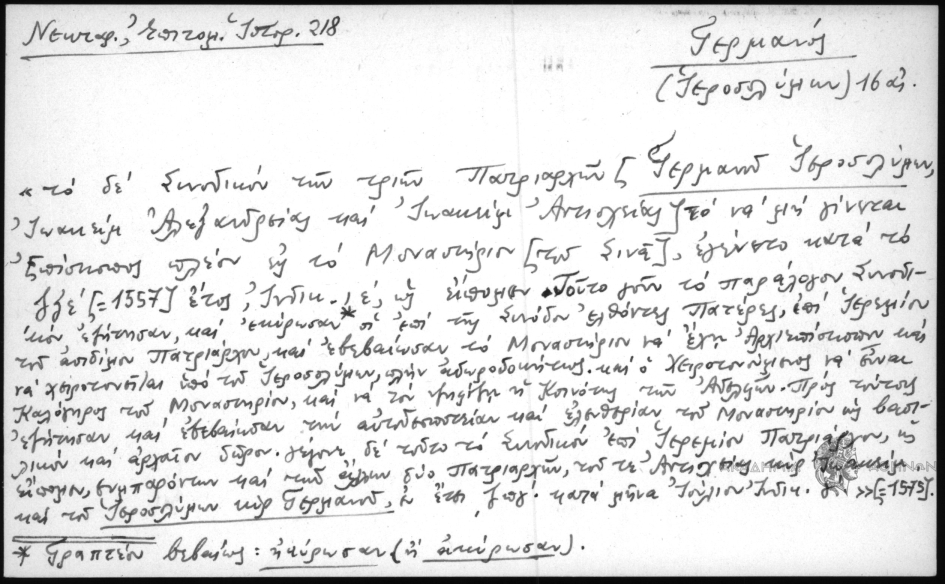 Νεκταρ., Ἐπιτομ. Ἱστορ. 218
Γερμανός
(Ἱεροσολύμων) 16 αἰ.
« τό δέ Συνοδικόν τῶν τριῶν Πατριαρχῶν [Γερμανοῦ Ἱεροσολύμων,
Ἰωακείμ Ἀλεξανδρείας καί Ἰωακείμ Ἀντιοχείας] τό νά μή γίνεται
Ἐπίσκοπος πλέον εἰς τό Μοναστήριον [τοῦ Σινᾶ], ἐγένετο κατά τό
ζξε´ [=1557] ἔτος, Ἰνδικ. ιε´, ὡς εἴπομεν. Τοῦτο γοῦν τό παράλογον Συνοδι-
κόν ἐζήτησαν, καί ἐκύρωσαν* οἱ ἐπί τῆς Συνόδου ἐλθόντες Πατέρες, ἐπί Ἱερεμίου
τοῦ ἀοιδίμου Πατριάρχου, καί ἐβεβαίωσαν τό Μοναστήριον νά ἔχῃ Ἀρχιεπίσκοπον καί
νά χειροτονῆται ὑπό τοῦ Ἱεροσολύμων, πλήν ἀδωροδοκήτως. καί ὁ χειροτονούμενος νά εἶναι
Καλόγηρος τοῦ Μοναστηρίου, καί νά τόν ψηφίζῃ ἡ Κοινότης τῶν Ἀδελφῶν. Πρός τούτοις
ἐζήτησαν καί ἐβεβαίωσαν τήν αὐτοδεσποτείαν καί ἐλευθερίαν τοῦ Μοναστηρίου ὡς βασι-
λικόν καί ἀρχαῖον δῶρον. γέγονε δέ τοῦτο τό Συνοδικόν ἐπί Ἱερεμίου Πατριάρχου, ὡς
εἴπομεν, συμπαρόντων καί τῶν ἄλλων δύο Πατριαρχῶν, τοῦ τε Ἀντιοχείας κύρ Ἰωακείμ
καί τοῦ Ἱεροσολύμων κύρ Γερμανοῦ, ἐν ἔτει ζπγ´. κατά μῆνα Ἰούλιον Ἰνδικ. γ´ »[=1575].
* Γραπτέον βεβαίως: ἠκύρωσαν (ἤ ἀκύρωσαν).